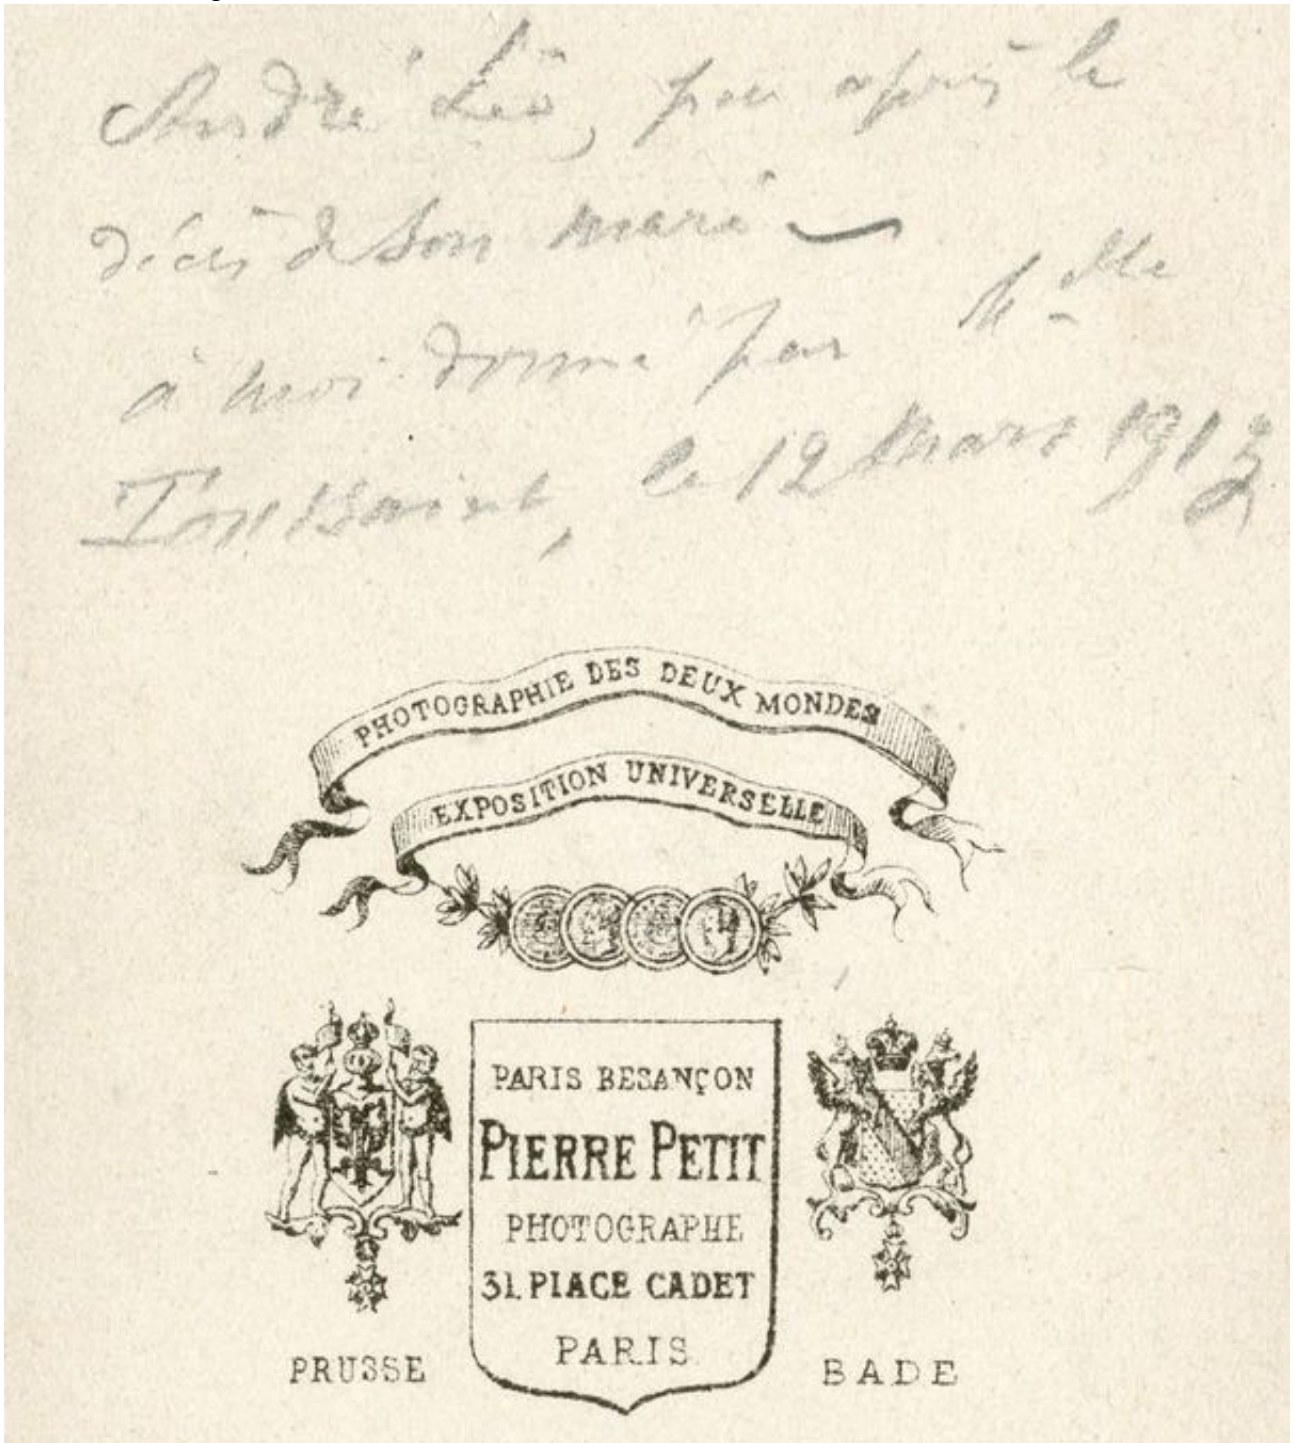 André Léo, peu après le
décès de son mari
à moi donné par Melle
Toussaint, le 12 Mars 191
PHOTOGRAPHIE DES DEUX MONDES
EXPOSITION UNIVERSELLE
PARIS BESANÇON
PIERRE PETIT
PHOTOGRAPHE
31 PLACE CADET
PARIS
PRUSSE
BADE